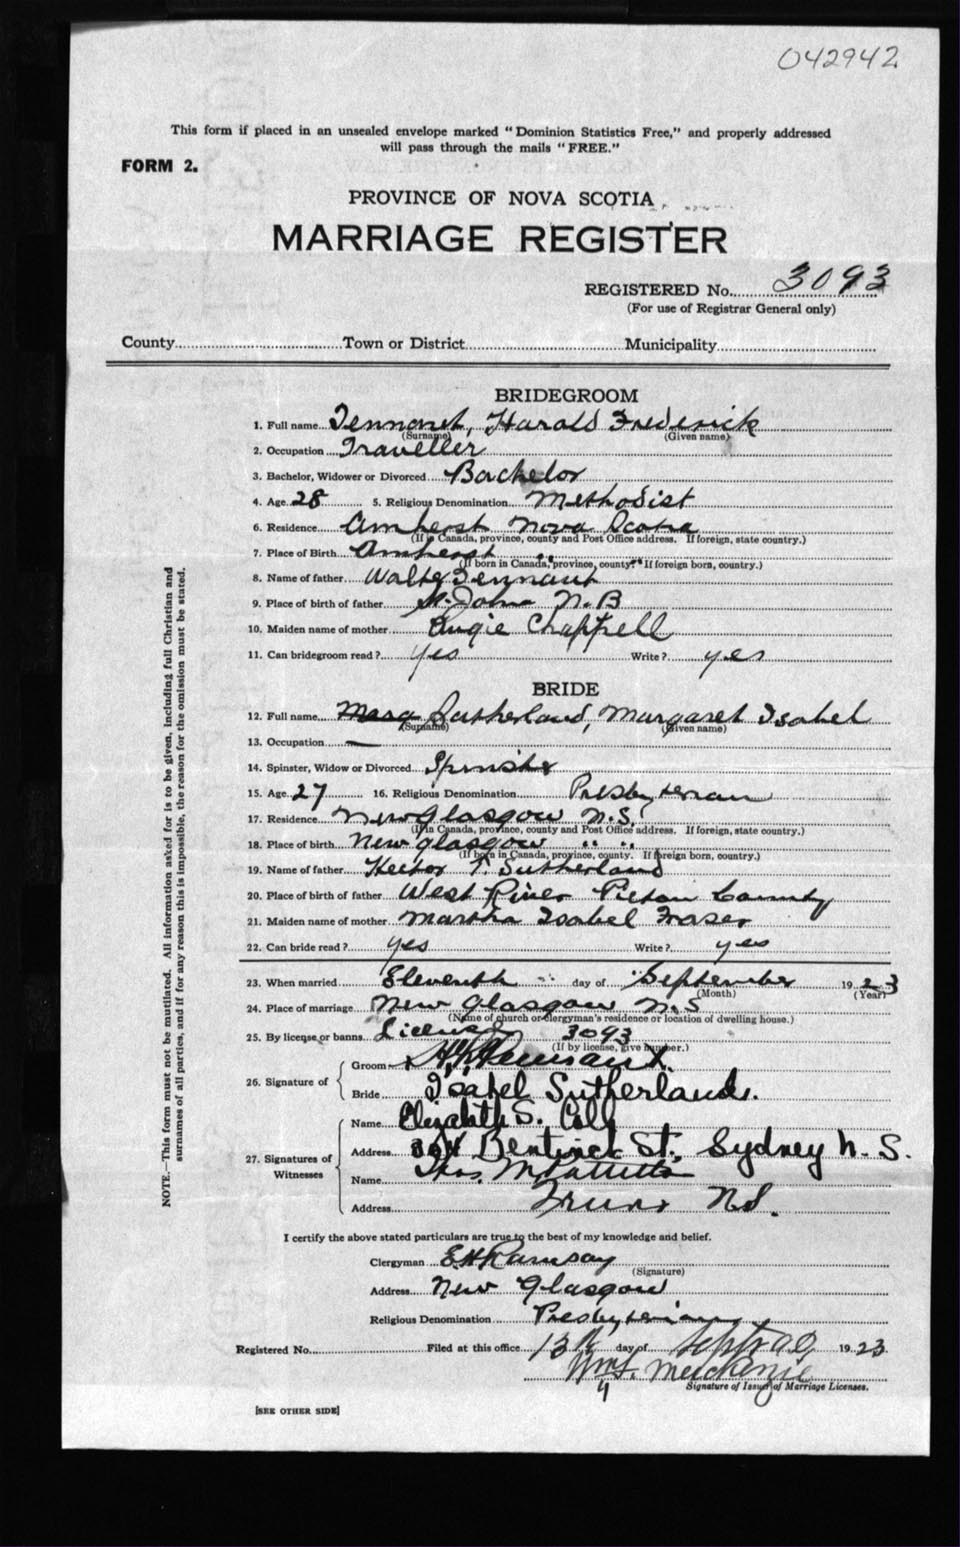 042942
This form if placed in an unsealed envelope marked "Dominion Statistics Free," and properly addressed
will pass through the mails "FREE."
FORM 2.
PROVINCE OF NOVA SCOTIA
MARRIAGE REGISTER
REGISTERED No. 3093
(For use of Registrar General only)
County Town or District Municipality
BRIDEGROOM
1. Full name Tennant, Harold Frederick
(Surname) (Given name)
2. Occupation Traveller
3. Bachelor, Widower or Divorced Bachelor
4. Age 28 5. Religious Denomination Methodist
6. Residence Amherst Nova Scotia
(If in Canada, province, county and Post Office address. If foreign, state country.)
7. Place of Birth Amherst " "
(If born in Canada, province, county. If foreign born, country.)
8. Name of father Walter Tennant
9. Place of birth of father St. John N.B
10. Maiden name of mother Angie Chappell
11. Can bridegroom read? yes Write? yes
BRIDE
12. Full name Sutherland, Margaret Isabel
(Surname) (Given name)
13. Occupation —
14. Spinster, Widow or Divorced Spinster
15. Age 27 16. Religious Denomination Presbyterian
17. Residence New Glasgow N.S.
(If in Canada, province, county and Post Office address. If foreign, state country.)
18. Place of birth New Glasgow " "
(If born in Canada, province, county. If foreign born, country.)
19. Name of father Hector T. Sutherland
20. Place of birth of father West River Pictou County
21. Maiden name of mother Martha Isabel Fraser
22. Can bride read? yes Write? yes
23. When married Eleventh day of September 1923
(Month) (Year)
24. Place of marriage New Glasgow N.S
(Name of church or clergyman's residence or location of dwelling house.)
25. By license or banns License 3093
(If by license, give number.)
26. Signature of
Groom
Bride Isabel Sutherland.
27. Signatures of Witnesses
Name Elizabeth S. Coll
Address Bentinck St., Sydney N. S.
Name Thos.
Address Truro NS.
I certify the above stated particulars are true to the best of my knowledge and belief.
Clergyman E H Ramsay
(Signature)
Address New Glasgow
Religious Denomination Presbyterian
Registered No. Filed at this office 13th day of Sept 1923
Wm. Mackenzie
Signature of Issuer of Marriage Licenses.
4
[SEE OTHER SIDE]
NOTE.—This form must not be mutilated. All information asked for is to be given, including full Christian and
surnames of all parties, and if for any reason this is impossible, the reason for the omission must be stated.